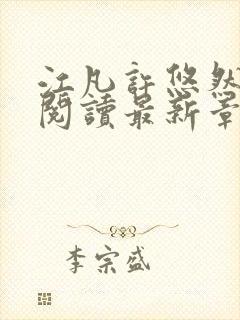 江凡許悠然
閱讀最新章
李宗盛